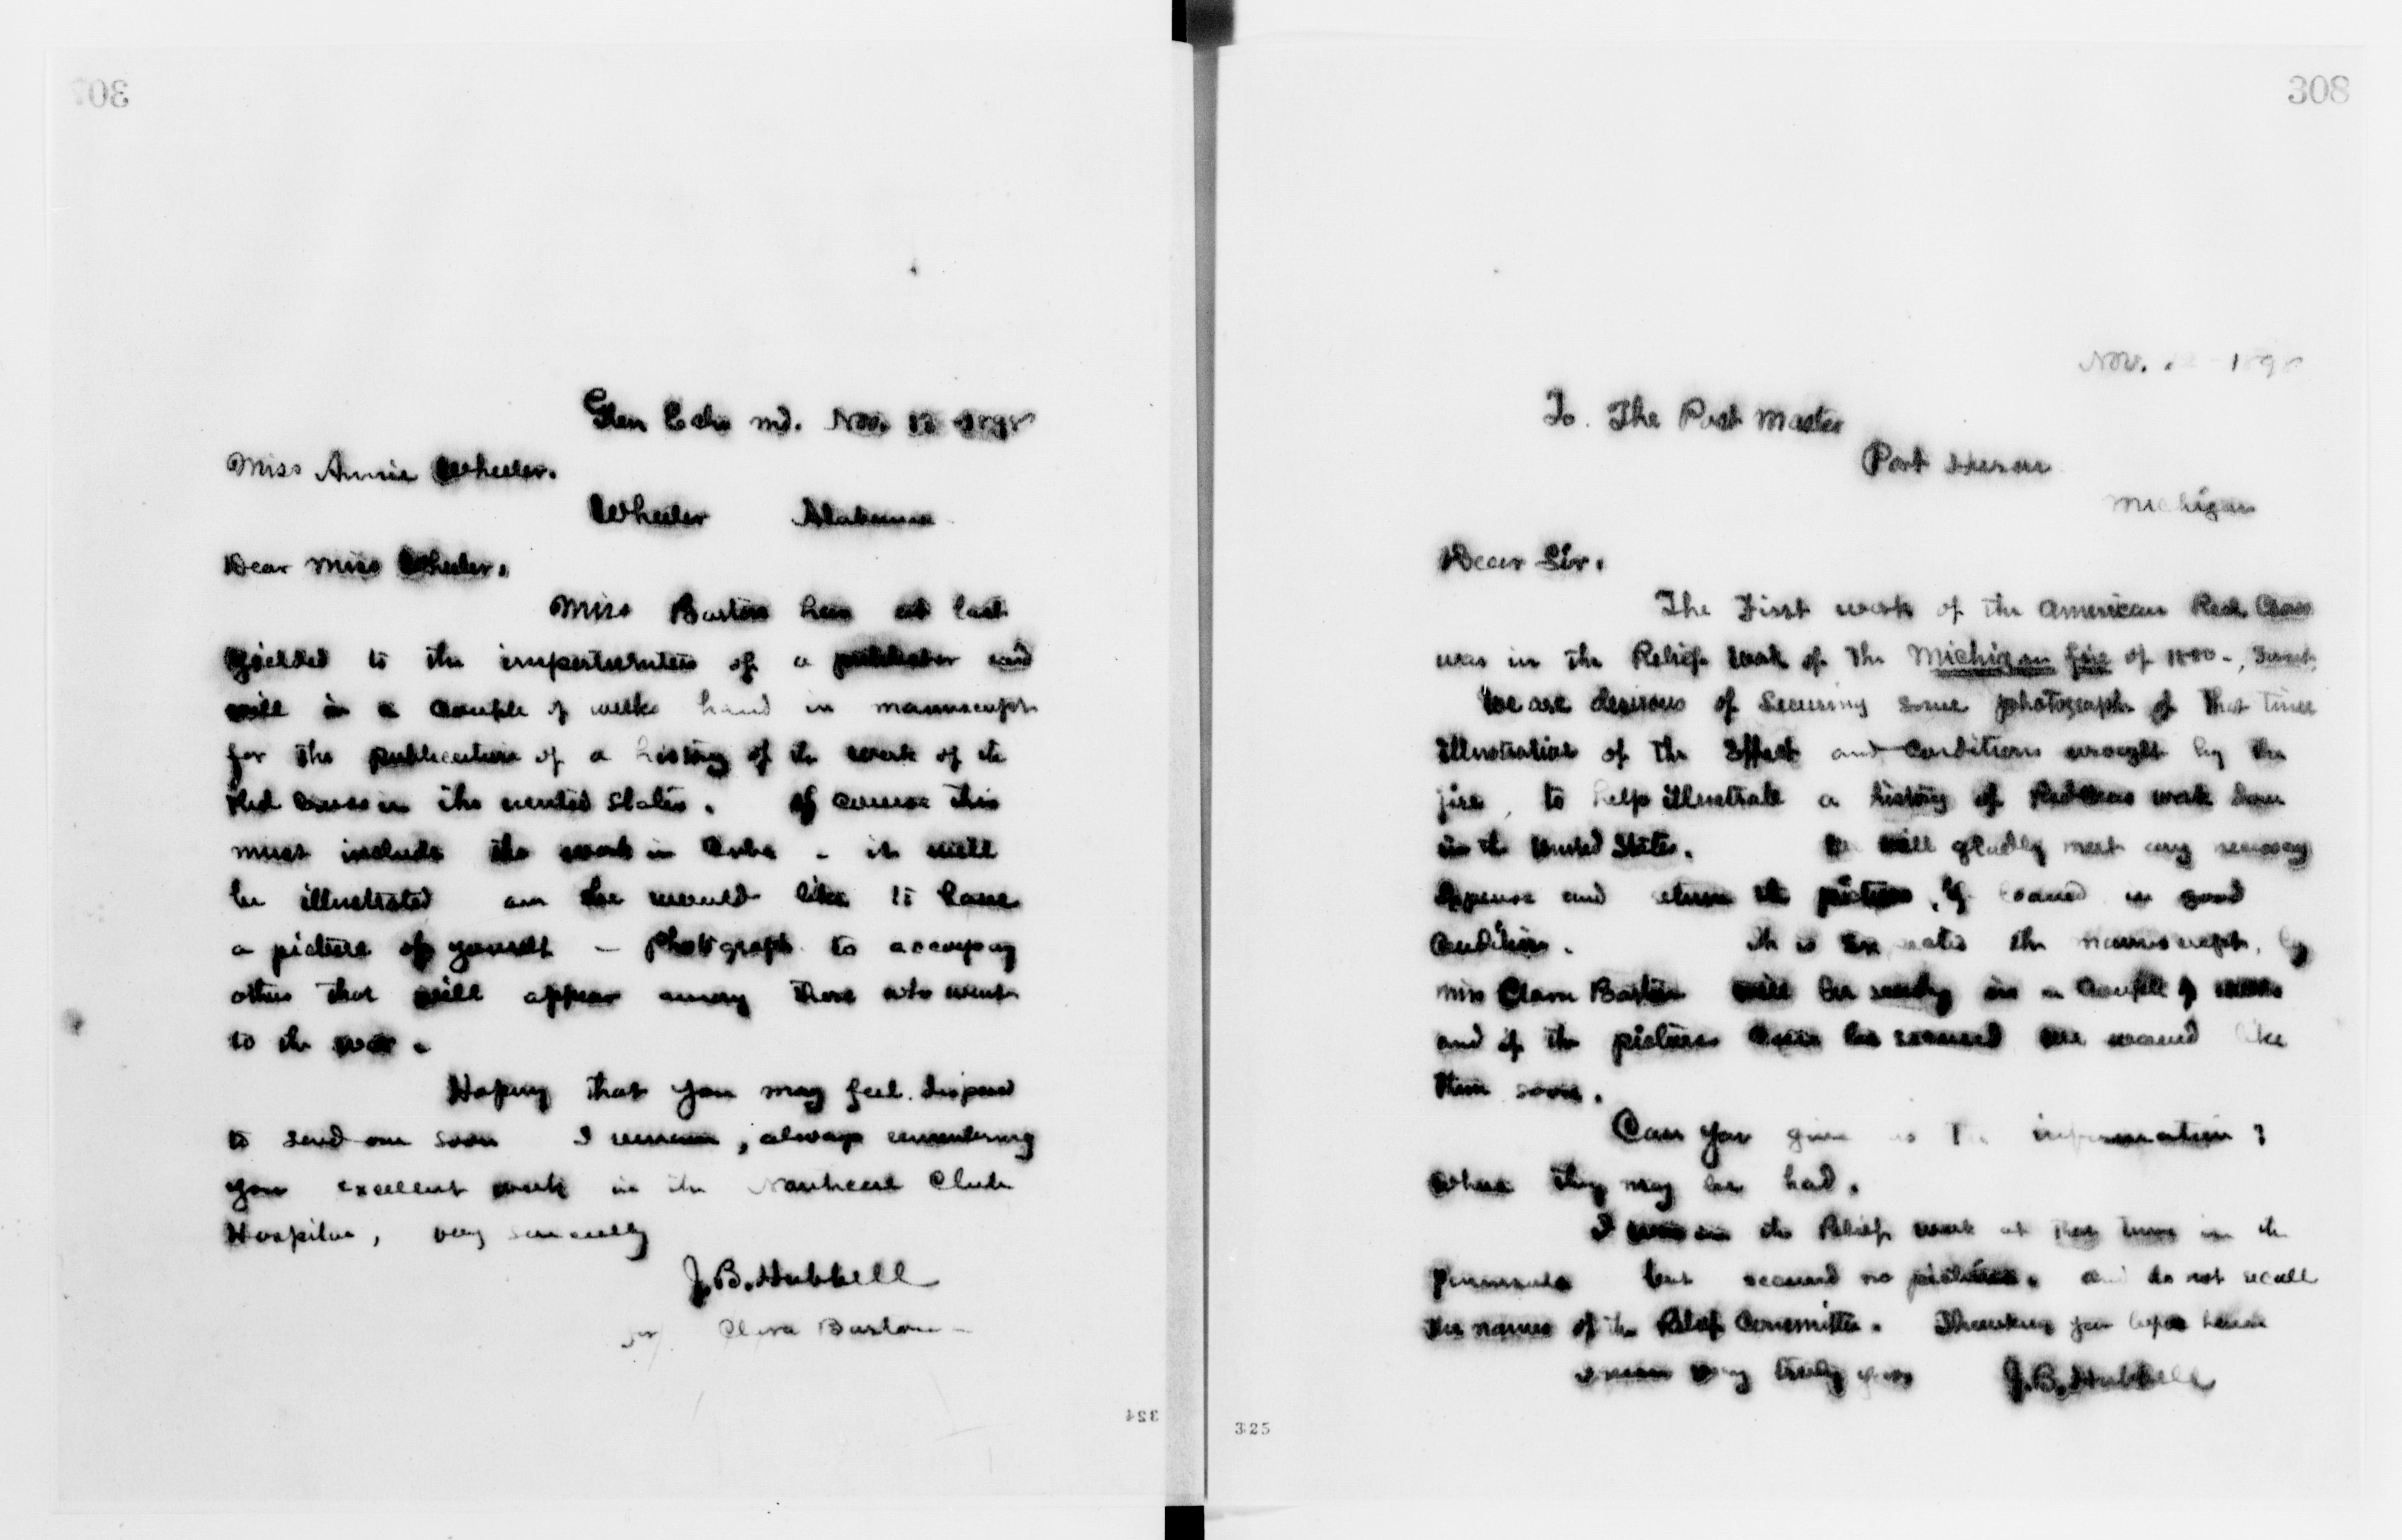 307
Glen Echo Md. Nov. 12 1898
Miss Annie Wheeler.
Wheeler Alabama
Dear Miss Wheeler,
Miss Barton has at last
yielded to the importunities of a publisher and
will in a couple of weeks hand in manuscript
for the publication of a history of the work of the
Red Cross in the United States. Of course this
must include the work in Cuba - it will
be illustrated and she would like to have
a picture of yourself - Photograph to accompany
others that will appear among those who went
to the war.
Hoping that you may feel disposed
to send one soon I remain, always remembering
your excellent work in the Club
Hospital, very sincerely
J. B. Hubbell
for Clara Barton -
324
308
Nov. 1898
To. The Post Master
Port Huron
Michigan
Dear Sir.
The First work of the American Red Cross
was in the Relief work of the Michigan fire of
We are desirous of securing some photographs of that time
illustrative of the Effect and Conditions wrought by the
fire, to help illustrate a history of Red Cross work done
in the United States. We will gladly meet any necessary
Expense and return the pictures, if loaned in good
Condition. It is the manuscript, by
Miss Clara Barton will be ready in a couple of weeks
and if the pictures can be secured we would like
them soon.
Can you give us the information ?
where they may be had.
I was in the Relief work at that time in the
peninsula but secured no pictures. and do not recall
the names of the Relief Committee. Thanking you
I remain very truly yours J. B. Hubbell
325